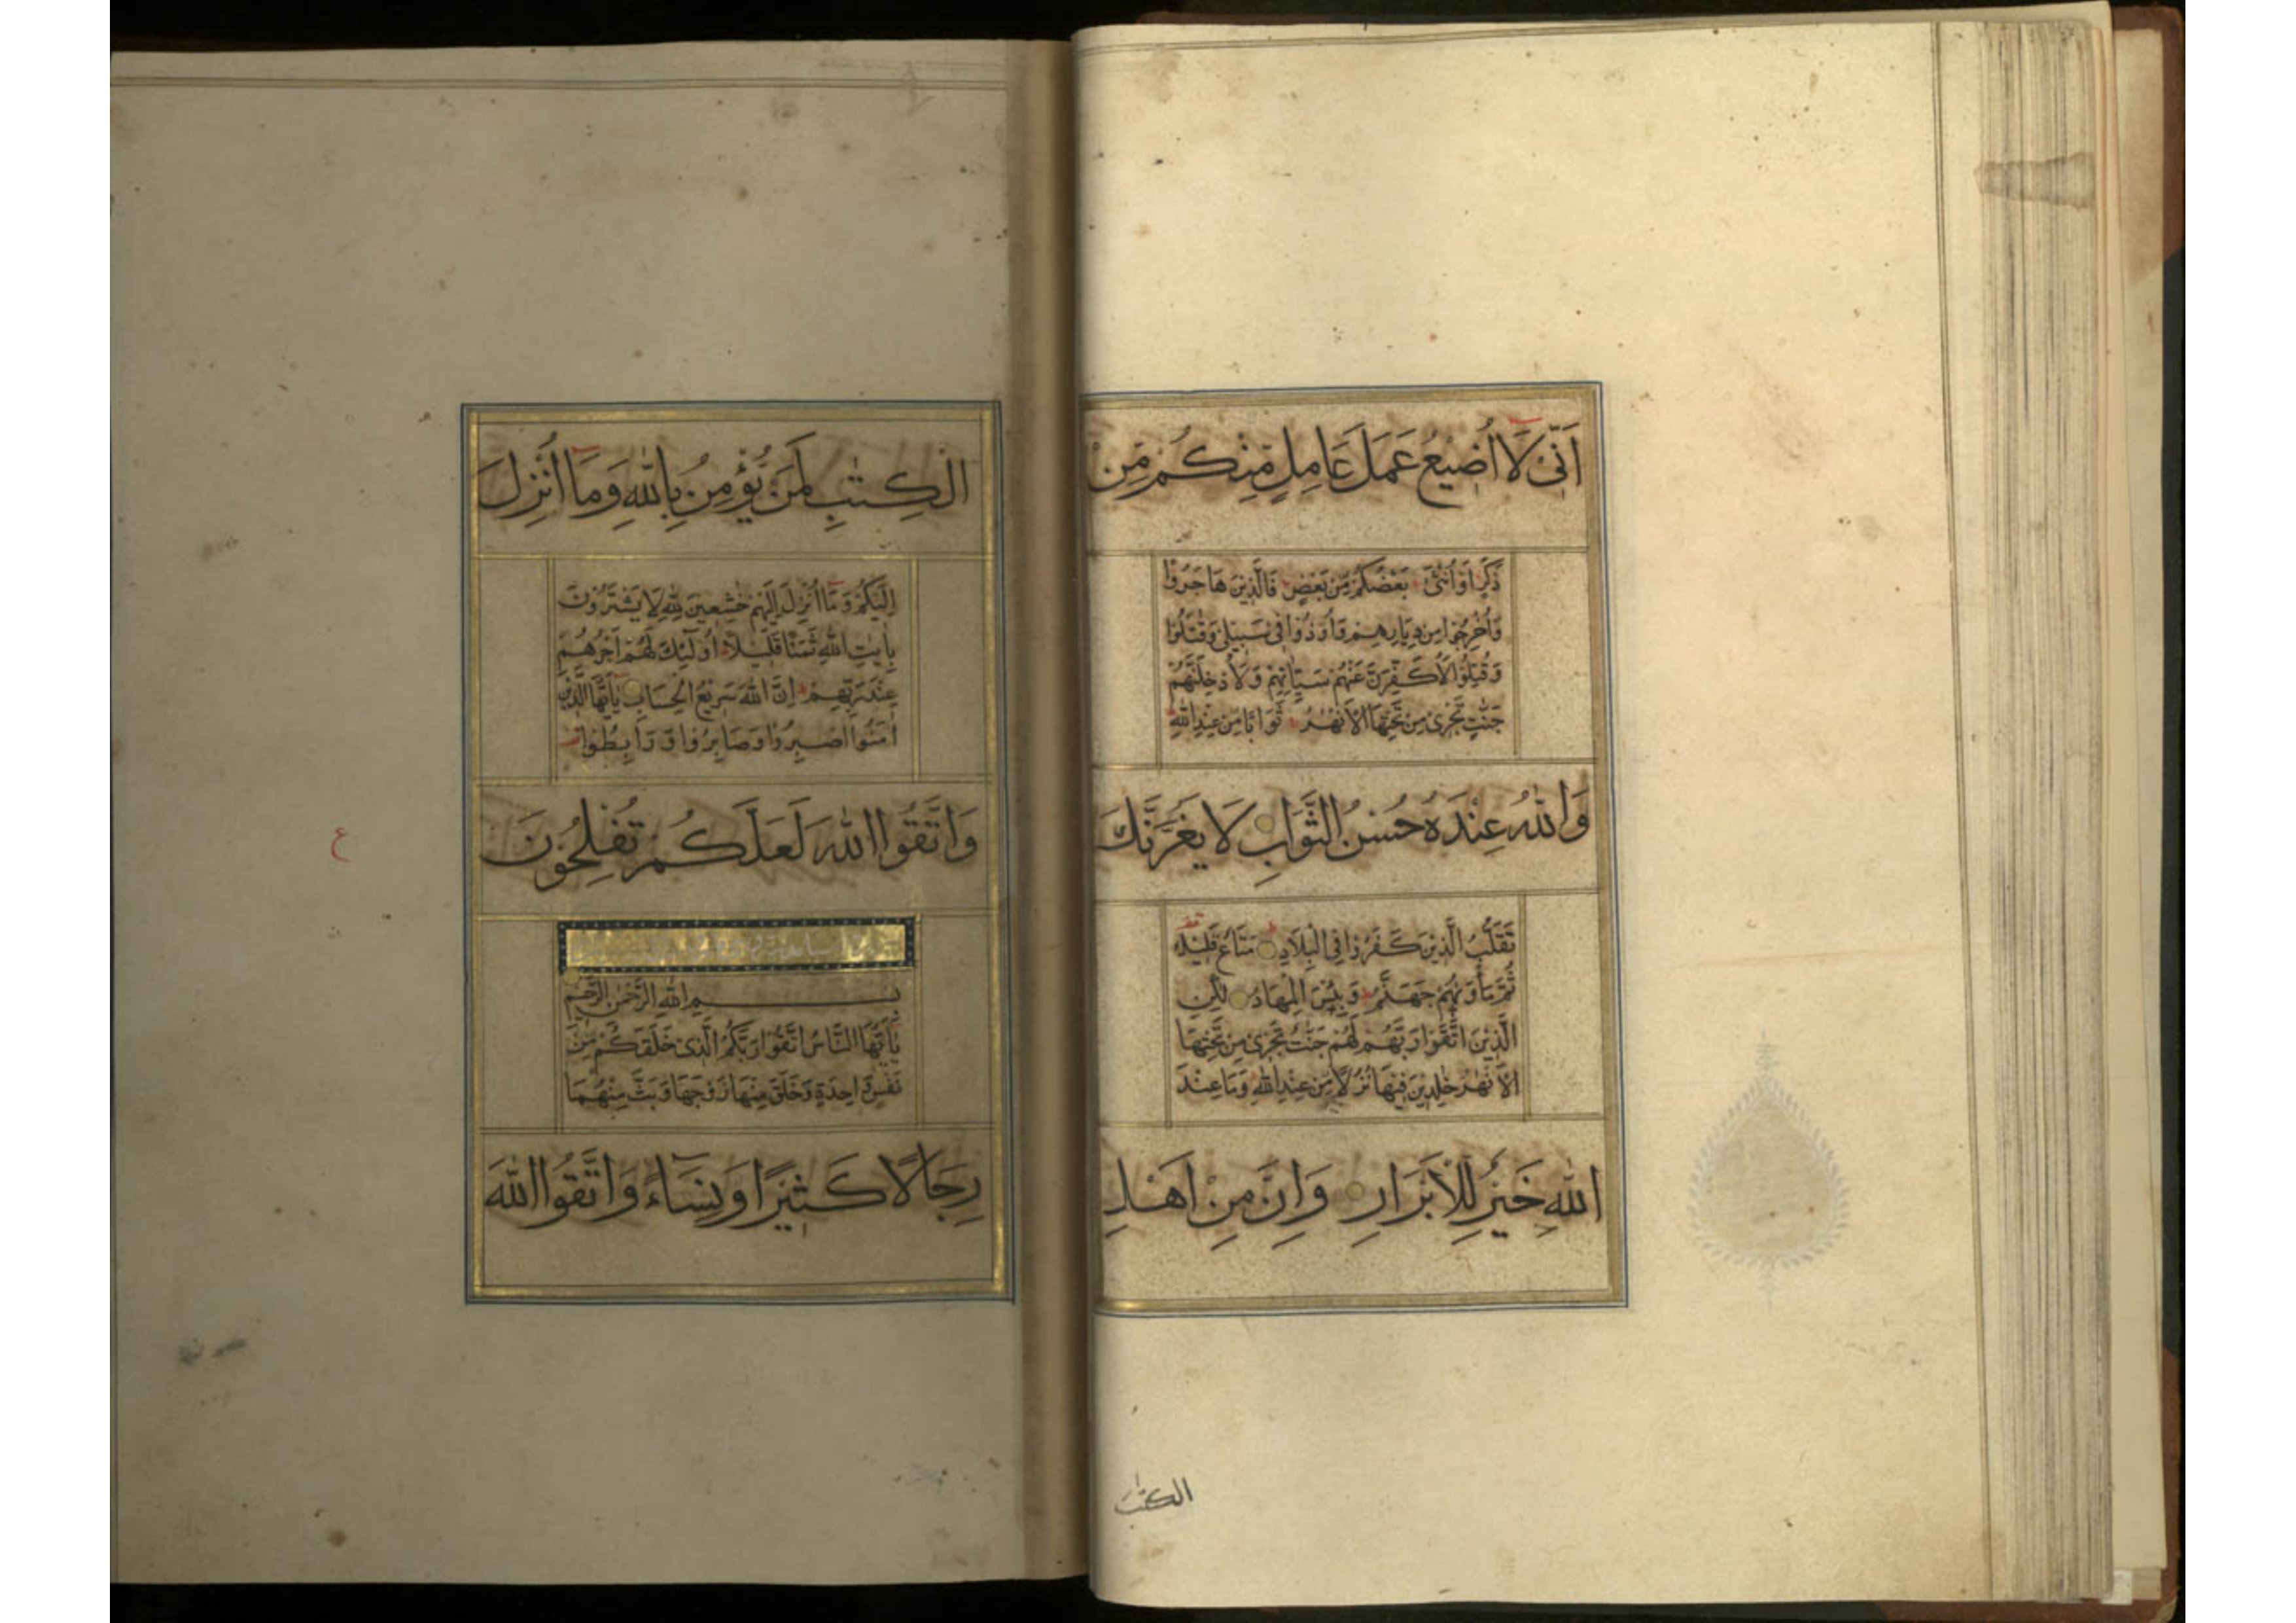 اَنّٖى لَا اُضٖيعُ عَمَلَ عَامِلٍ مِّنْكُمْ مِّنْ
ذَكَرٍ اَوْ اُنْثٰى بَعْضُكُمْ مِّنْ بَعْضٍ فَالَّذِيْنَ هَاجَرُوْا
وَاُخْرِجُوْا مِنْ دِيَارِهِمْ وَاُوْذُوْا فِىْ سَبِيْلِىْ وَقٰتَلُوْا
وَقُتِلُوْا لَاُكَفِّرَنَّ عَنْهُمْ سَيِّاٰتِهِمْ وَلَاُدْخِلَنَّهُمْ
جَنّٰتٍ تَجْرِىْ مِنْ تَحْتِهَا الْاَنْهٰرُ ثَوَابًا مِّنْ عِنْدِ اللّٰهِ
وَاللّٰهُ عِنْدَهٗ حُسْنُ الثَّوَابِ لَا يَغُرَّنَّكَ
تَقَلُّبُ الَّذِيْنَ كَفَرُوْا فِى الْبِلَادِ مَتَاعٌ قَلِيْلٌ
ثُمَّ مَأْوٰىهُمْ جَهَنَّمُ وَبِئْسَ الْمِهَادُ لٰكِنِ
الَّذِيْنَ اتَّقَوْا رَبَّهُمْ لَهُمْ جَنّٰتٌ تَجْرِىْ مِنْ تَحْتِهَا
الْاَنْهٰرُ خٰلِدِيْنَ فِيْهَا نُزُلًا مِّنْ عِنْدِ اللّٰهِ وَمَا عِنْدَ
اللّٰهِ خَيْرٌ لِّلْاَبْرَارِ وَاِنَّ مِنْ اَهْلِ
الكتٰب
الْكِتٰبِ لَمَنْ يُّؤْمِنُ بِاللّٰهِ وَمَا اُنْزِلَ
اِلَيْكُمْ وَمَا اُنْزِلَ اِلَيْهِمْ خٰشِعِيْنَ لِلّٰهِ لَا يَشْتَرُوْنَ
بِاٰيٰتِ اللّٰهِ ثَمَنًا قَلِيْلًا اُولٰٓئِكَ لَهُمْ اَجْرُهُمْ
عِنْدَ رَبِّهِمْ اِنَّ اللّٰهَ سَرِيْعُ الْحِسَابِ يٰاَيُّهَا الَّذِيْنَ
اٰمَنُوا اصْبِرُوْا وَصَابِرُوْا وَرَابِطُوْا
وَاتَّقُوا اللّٰهَ لَعَلَّكُمْ تُفْلِحُوْنَ
ع
بِسْمِ اللّٰهِ الرَّحْمٰنِ الرَّحِيْمِ
يٰاَيُّهَا النَّاسُ اتَّقُوْا رَبَّكُمُ الَّذِىْ خَلَقَكُمْ مِّنْ
نَفْسٍ وَّاحِدَةٍ وَّخَلَقَ مِنْهَا زَوْجَهَا وَبَثَّ مِنْهُمَا
رِجَالًا كَثِيْرًا وَّنِسَآءً وَاتَّقُوا اللّٰهَ